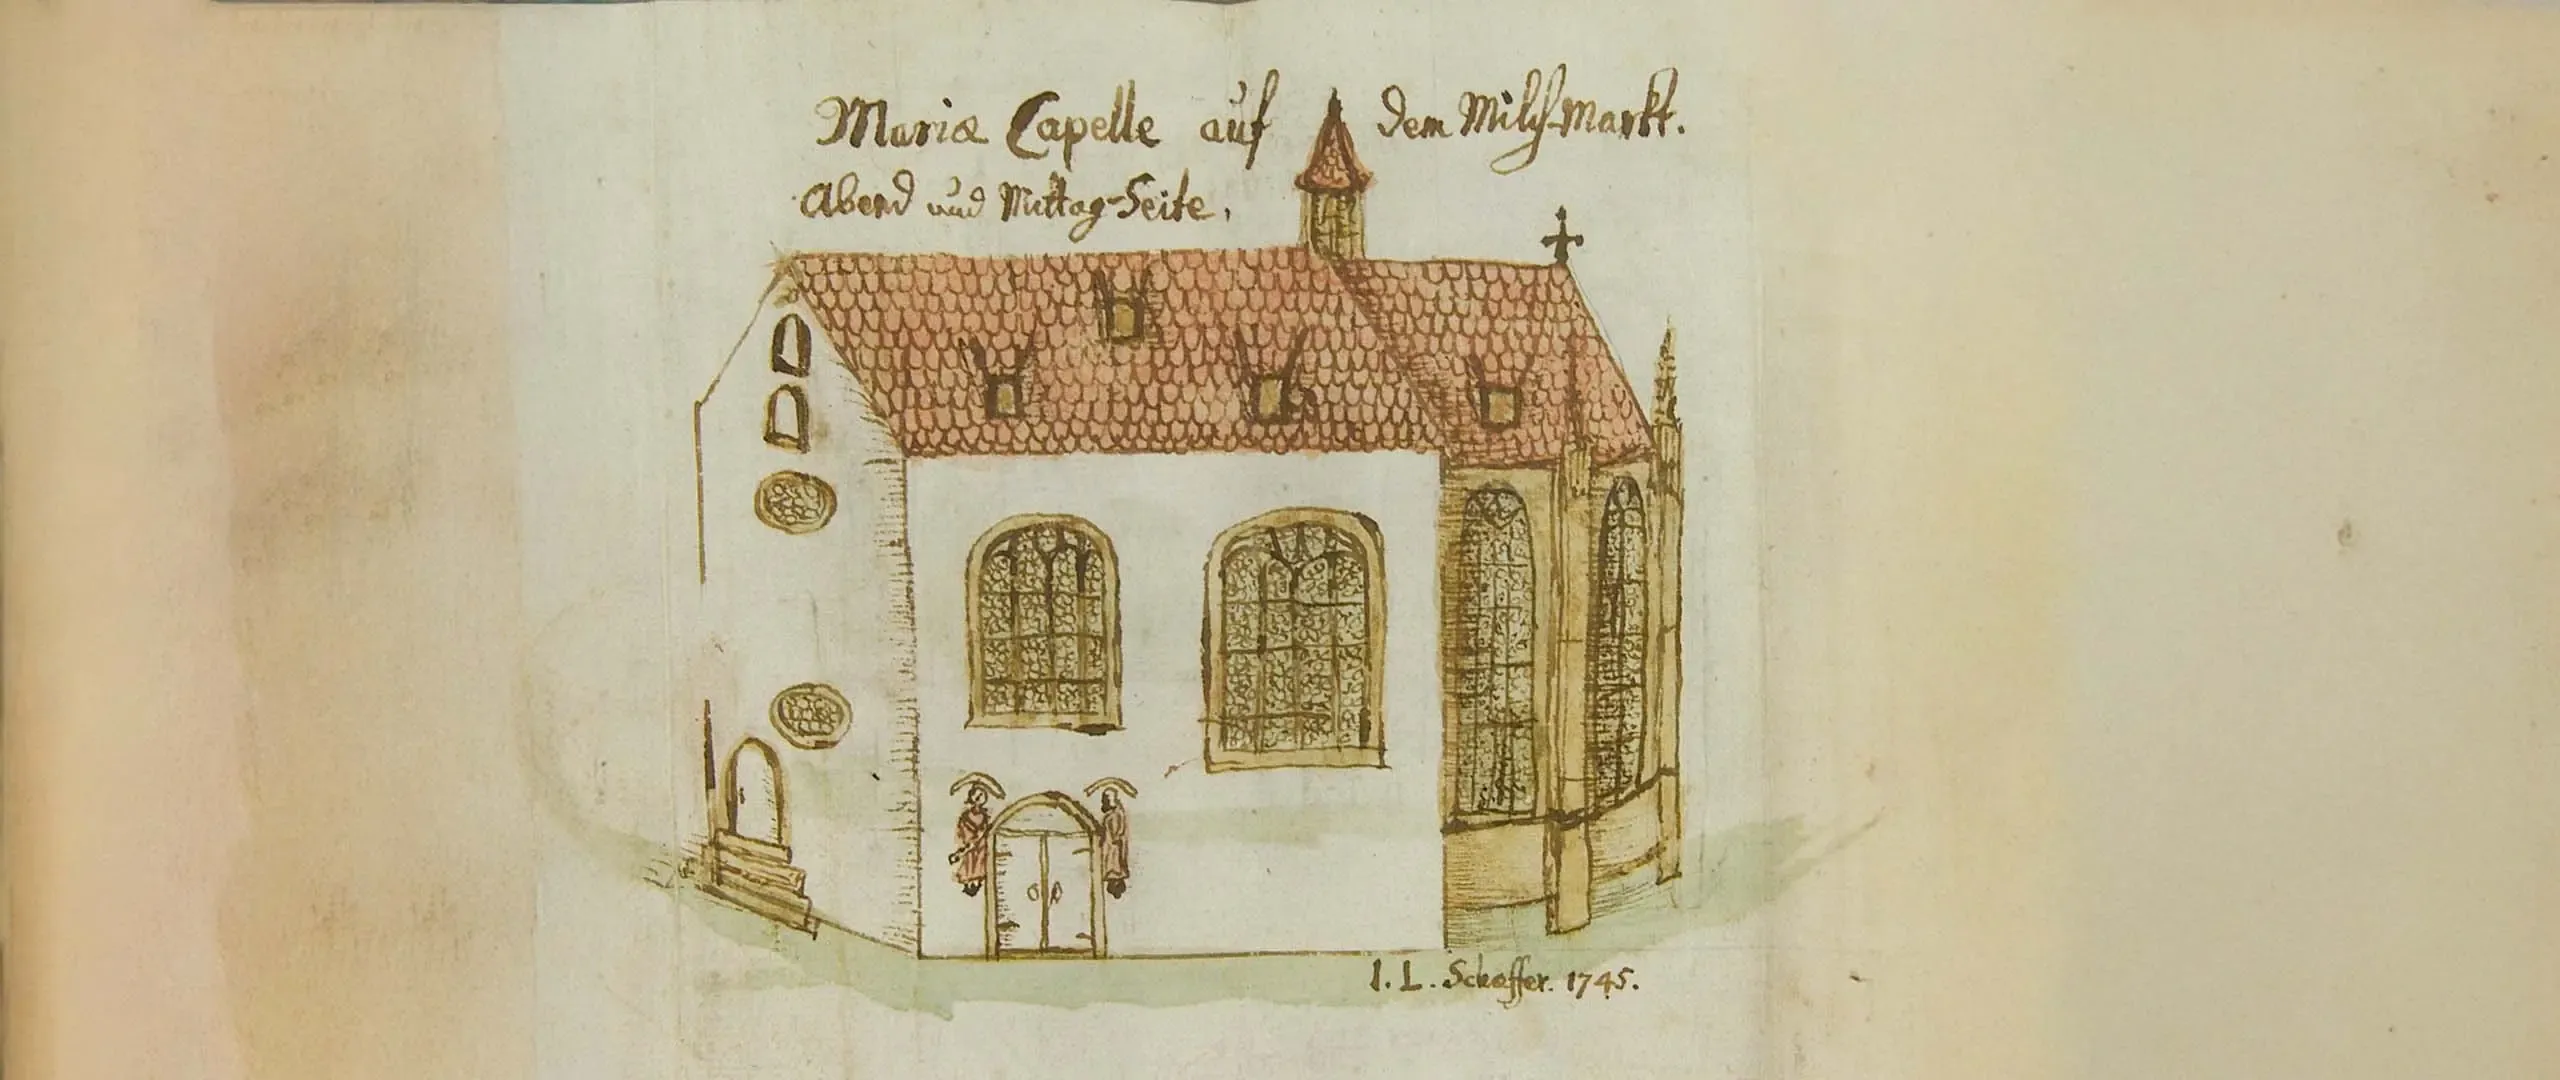 Mariæ Capelle auf dem Milch-Markt.
Abend und Mittag-Seite,
I. L. Schæffer. 1745.